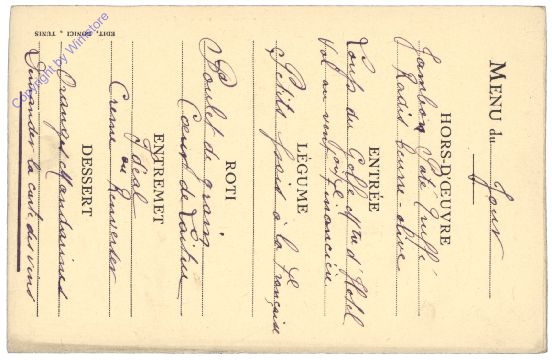 MENU du Jour
HORS-D'ŒUVRE
Jambon Pâté Truffé
Radis beurre - olive
ENTRÉE
Loup du Golfe Mtre d'Hotel
Vol au vent financière
LÉGUME
Petits pois à la Française
ROTI
Poulet de grain
Cœur de Laitue
ENTREMET
Idéal
ou
Creme Renversée
DESSERT
Oranges Mandarines
Demander la carte des vins
EDIT. BONICI, TUNIS
Copyright by Winstore